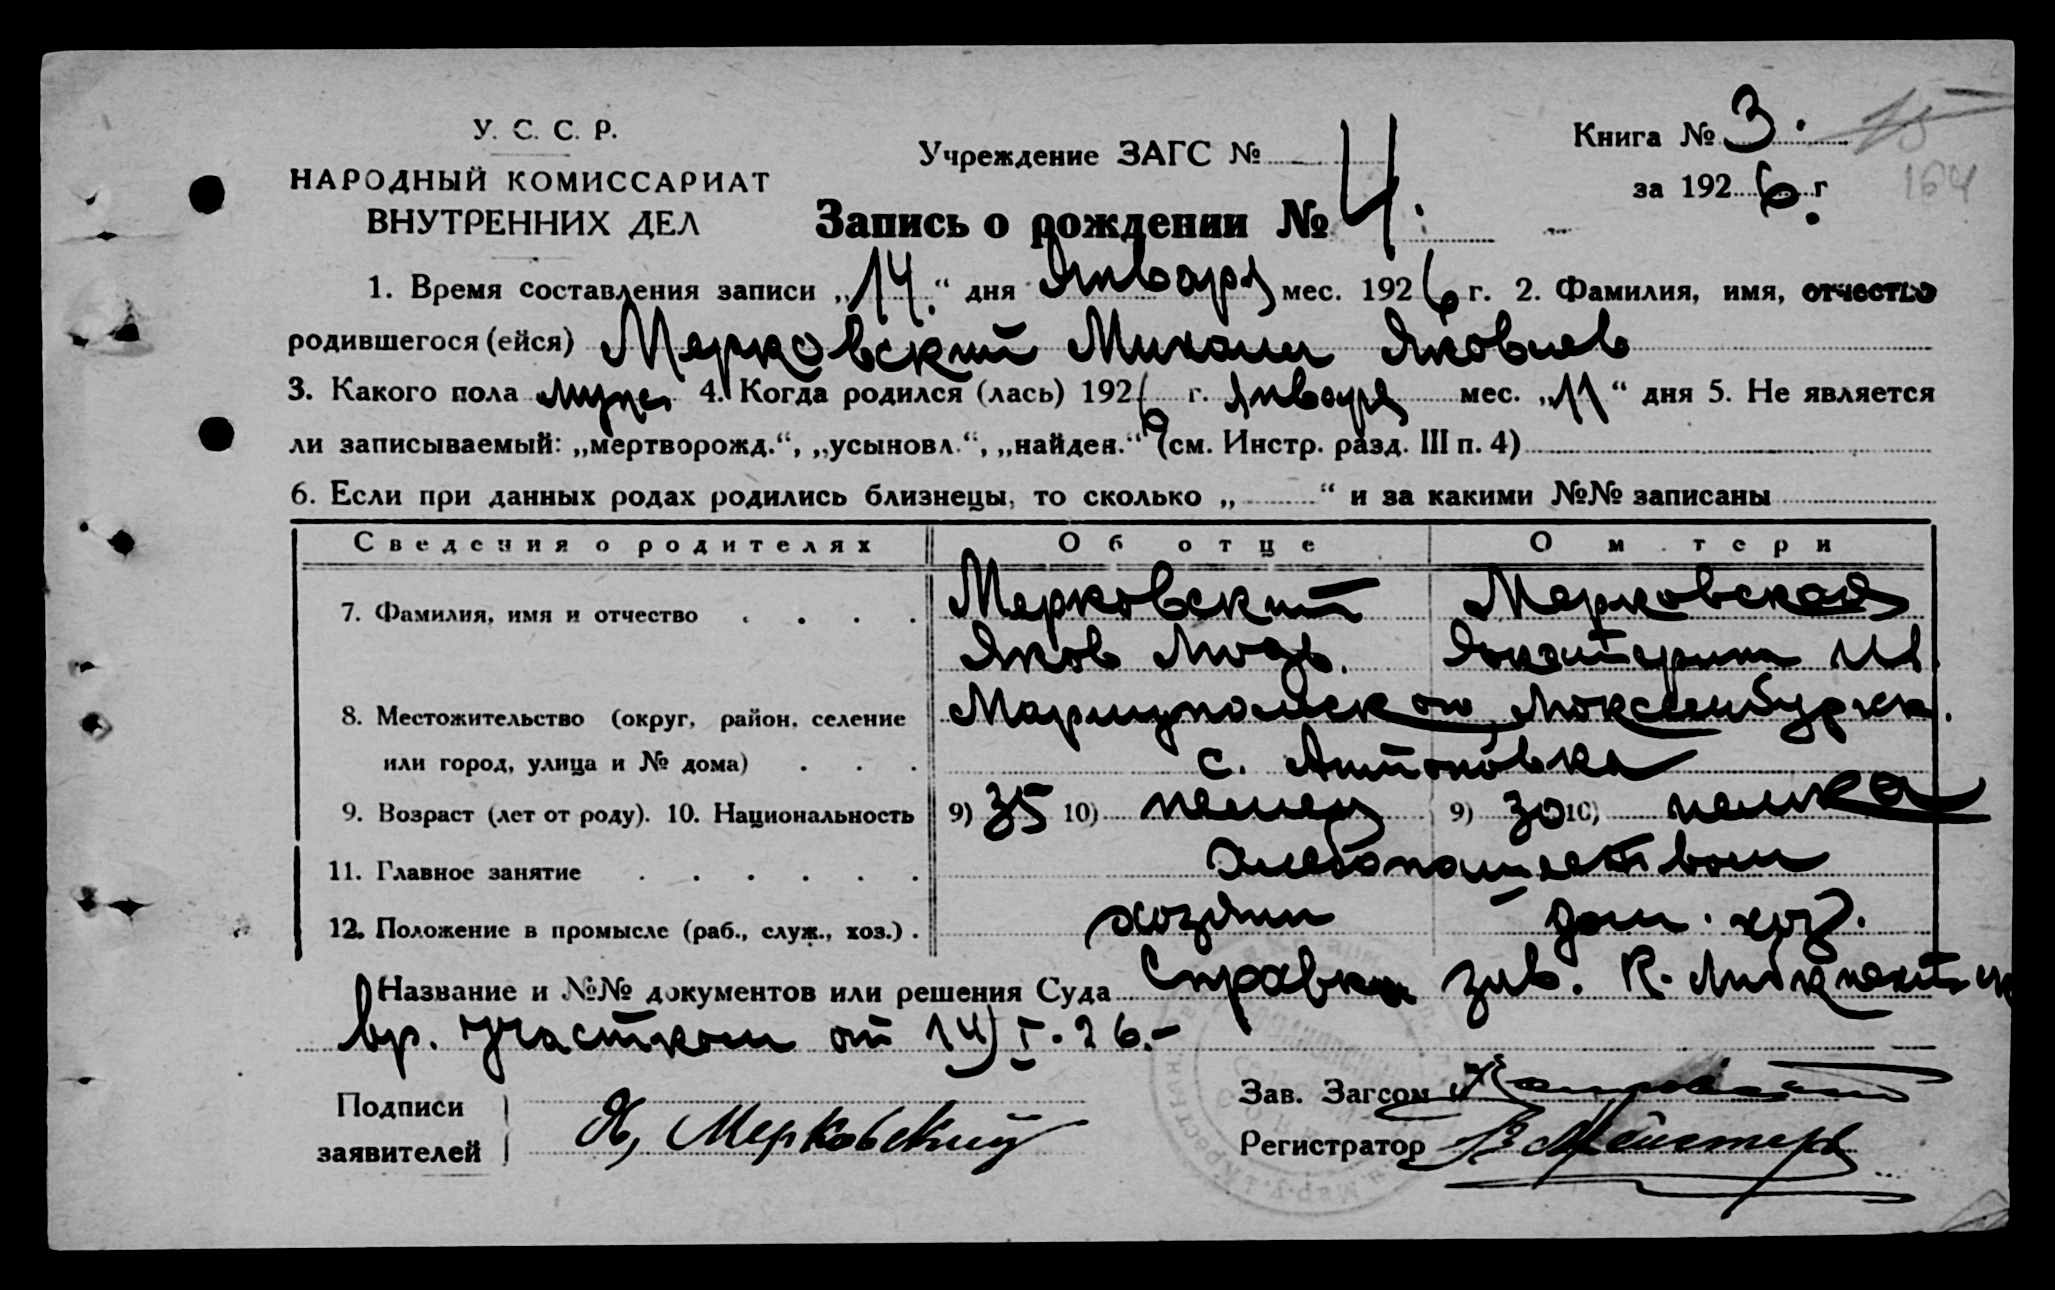 У. С. С. Р.
НАРОДНЫЙ КОМИССАРИАТ
ВНУТРЕННИХ ДЕЛ
Учреждение ЗАГС №
Книга № 3.
за 1926 г.
164
Запись о рождении № 4.
1. Время составления записи „14.“ дня Января мес. 1926 г. 2. Фамилия, имя, отчество
родившегося (ейся) Мерковский Михаил Яковлев
3. Какого пола муж. 4. Когда родился (лась) 1926 г. Января мес. „11“ дня 5. Не является
ли записываемый: „мертворожд.“, „усыновл.“, „найден.“ (см. Инстр. разд. III п. 4)
6. Если при данных родах родились близнецы, то сколько „ “ и за какими №№ записаны
Сведения о родителях Об отце О м тери
7. Фамилия, имя и отчество Мерковский Мерковская
Яков Людв. Екатерина Ив.
8. Местожительство (округ, район, селение Мариупольского, Люксембургск.
или город, улица и № дома) с. Антоновка
9. Возраст (лет от роду). 10. Национальность 9) 35 10) немец 9) 30 10) немка
11. Главное занятие Хлебопашеством
12. Положение в промысле (раб., служ., хоз.) хозяин дом. хоз.
Название и №№ документов или решения Суда Справка К.
вр. участком от 14/I-26.-
Подписи
заявителей Я, Мерковский
Зав. Загсом
Регистратор В Мейстер